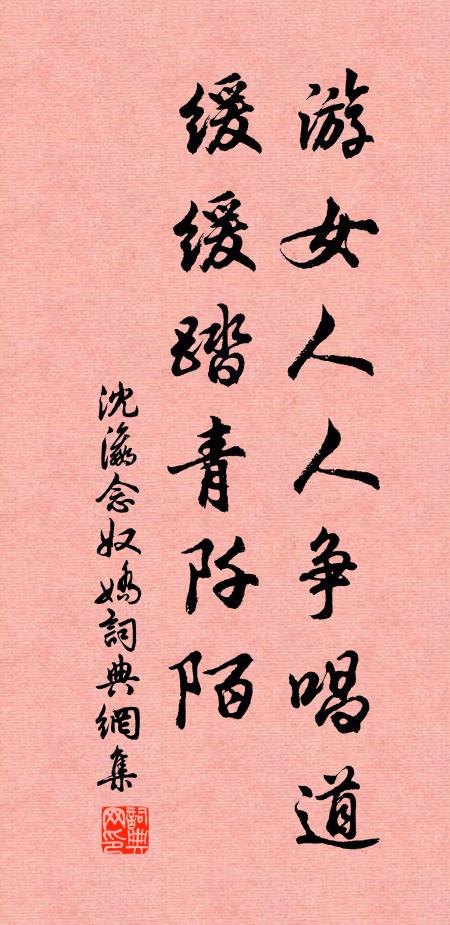 游女人人争唱道
缓缓踏青阡陌
沈瀛念奴嬌詞典網集
詞典网印